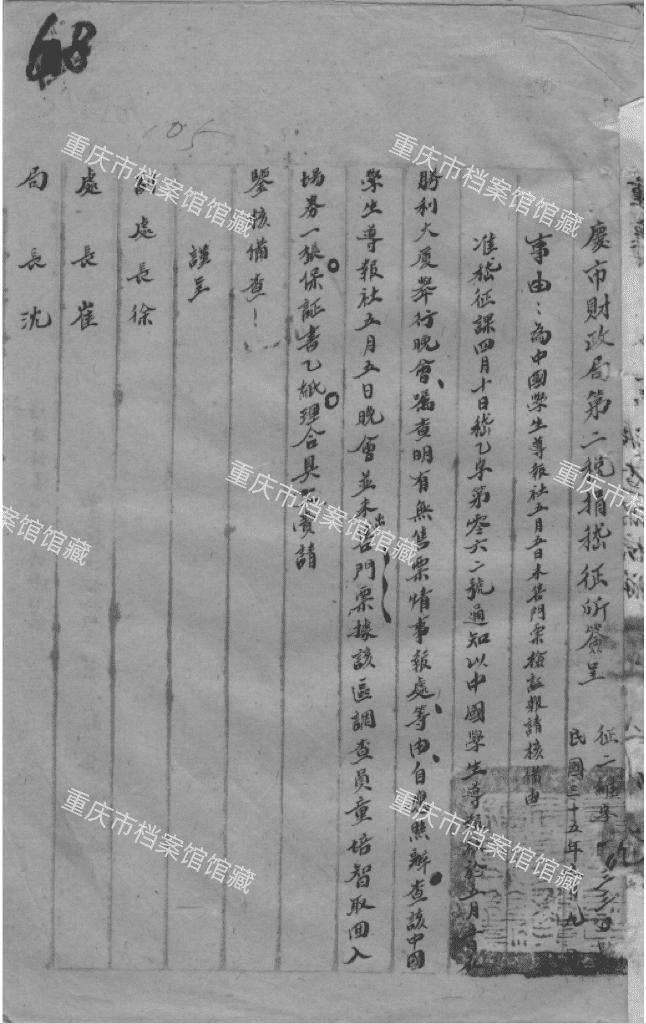 慶市財政局第二稅捐嵇征所簽呈
征二雜字
民國三十五年
事由：為中國學生導報社五月五日未售門票撿証報請核備由
准嵇征課四月十日嵇乙字第零六二號通知以中國學生導報社於五月
勝利大厦舉行晚會、囑查明有無售票情事報處、等由、自應照辦查該中国
學生導報社五月五日晚會並未出售門票據該區調查員童培智取回入
場券一張保証書乙紙理合具實請
鑒核備查！
謹呈
副處長徐
處長崔
局長沈
68
105
重庆市档案馆馆藏
重庆市档案馆馆藏
重庆市档案馆馆藏
重庆市档案馆馆藏
重庆市档案馆馆藏
重庆市档案馆馆藏
重庆市档案馆馆藏